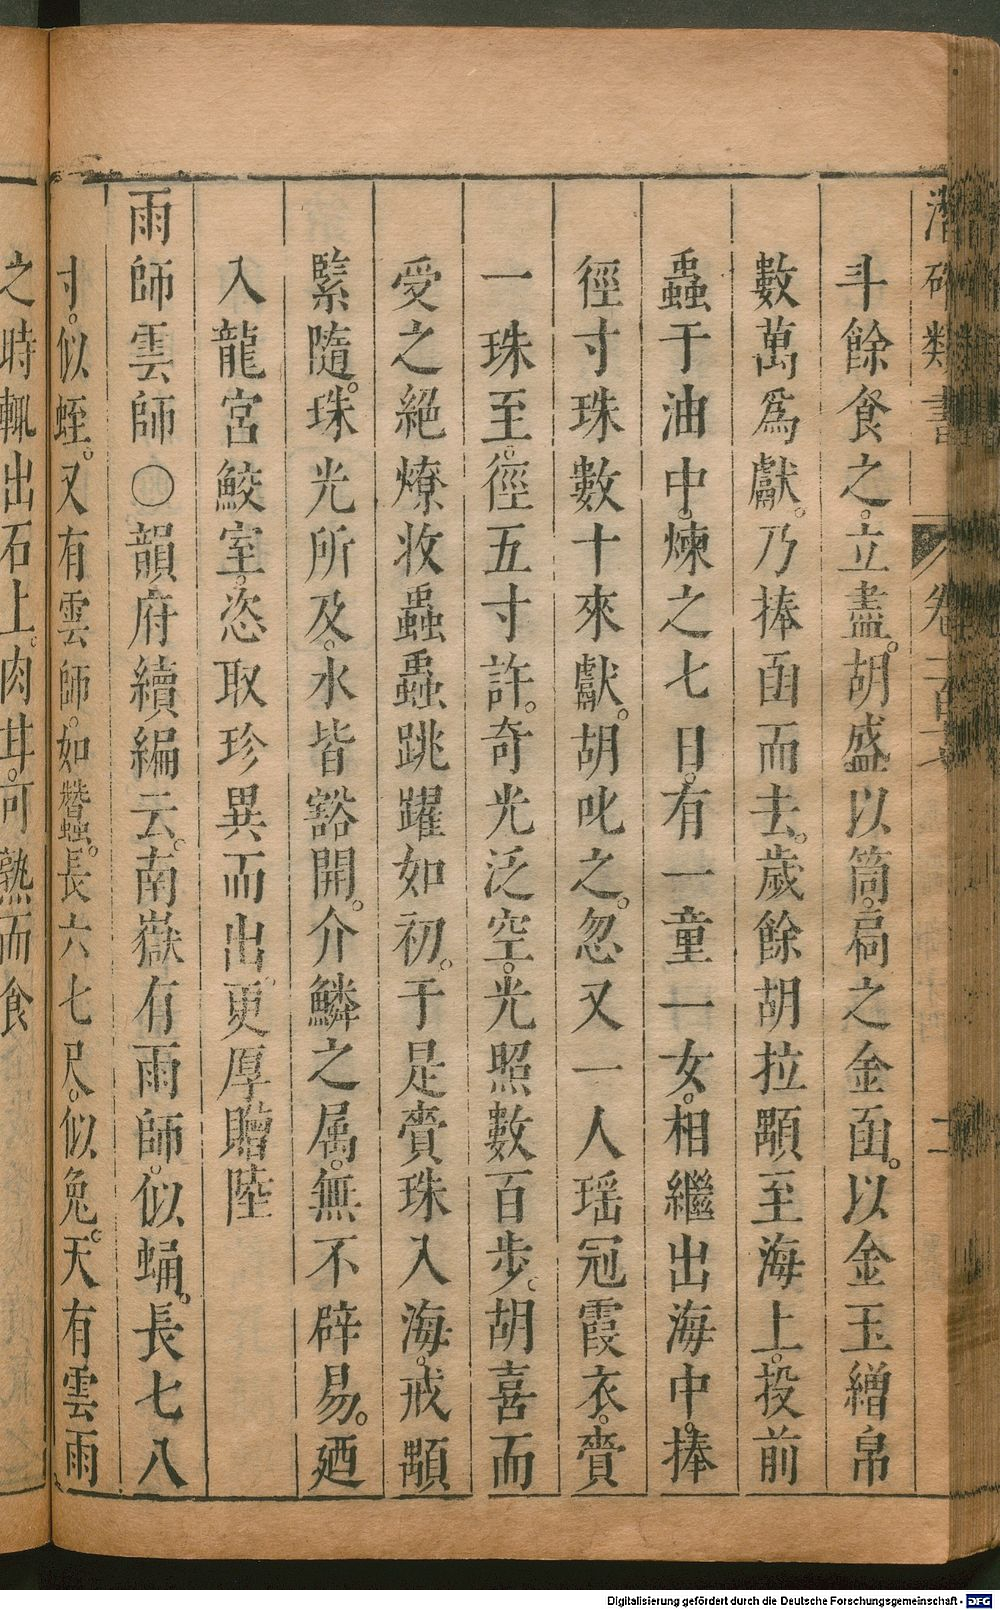 潛確類書 卷一百二 二
斗餘食之立盡。胡盛以筒。扃之金函。以金玉繒帛
數萬爲獻。乃捧函而去。歲餘胡拉顒至海上。投前
蟲于油中。煉之七日。有一童一女。相繼出海中。捧
徑寸珠數十來獻。胡叱之。忽又一人瑶冠霞衣。賫
一珠至。徑五寸許。奇光泛空。光照數百步。胡喜而
受之絕燎收蟲蟲跳躍如初。于是賫珠入海。戒顒
緊隨。珠光所及。水皆豁開。介鱗之属。無不辟易。廼
入龍宮鮫室。恣取珍異而出。更厚贈陸
雨師雲師○韻府續編云。南嶽有雨師。似蛹。長七八
寸。似蛭。又有雲師。如蠶。長六七尺。似兔。天有雲雨
之時輒出石上。肉甘。可熟而食
Digitalisierung gefördert durch die Deutsche Forschungsgemeinschaft - DFG